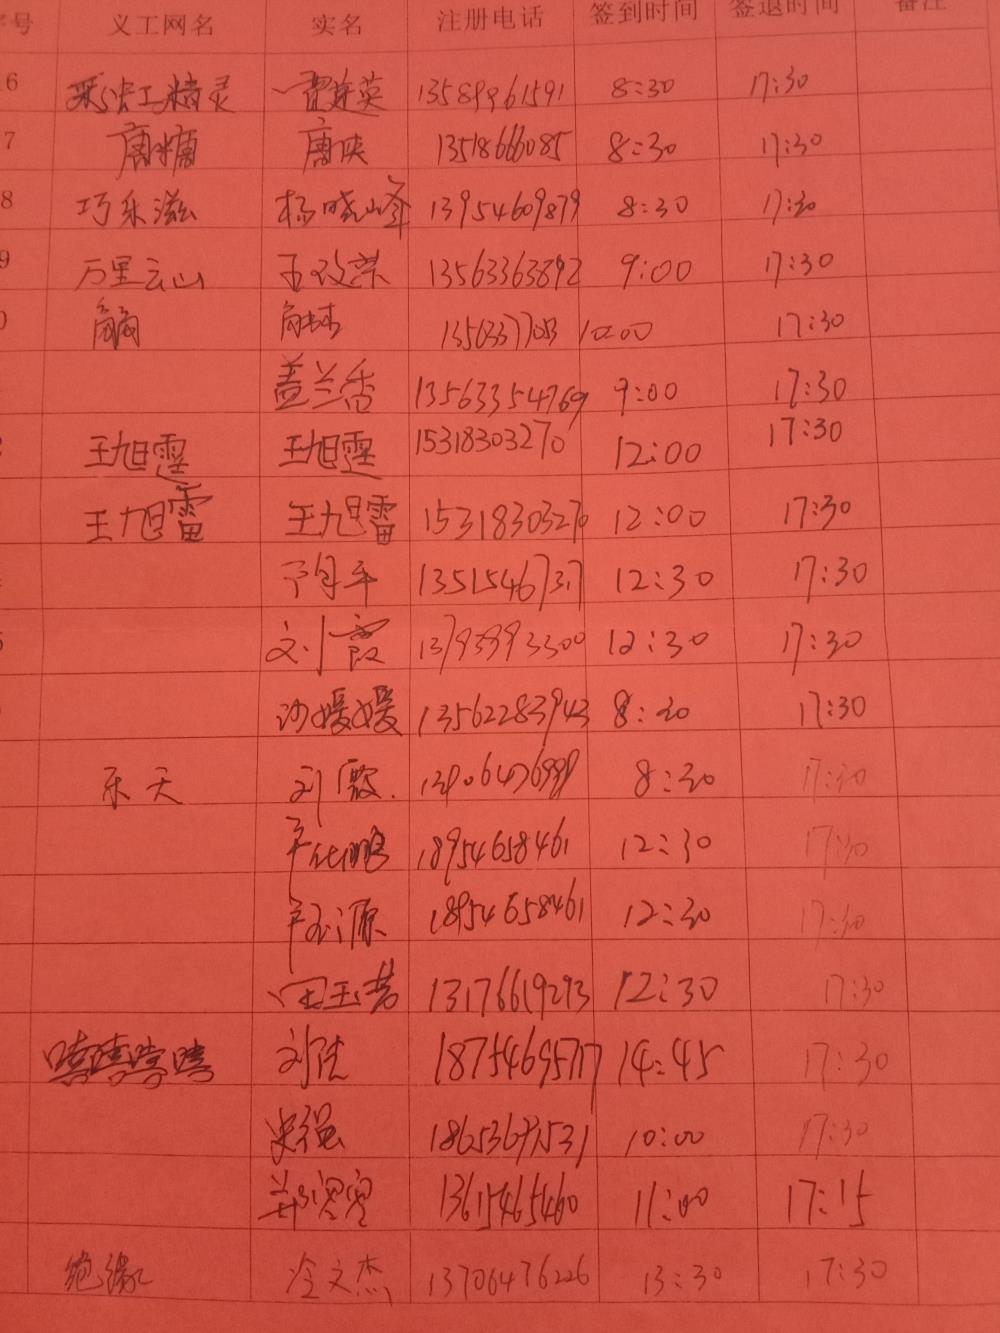 号 义工网名 实名 注册电话 签到时间 签退时间 备注
6 彩虹精灵 13589961591 8:30 17:30
7 唐糖 唐侠 13518666085 8:30 17:30
8 巧乐滋 杨晓峰 13954609879 8:30 17:30
9 万里云山 王改荣 13563363892 9:00 17:30
0 10:00 17:30
盖兰香 13563354769 9:00 17:30
王旭霆 王旭霆 15318303270 12:00 17:30
王旭雷 王旭雷 15318303270 12:00 17:30
12:30 17:30
刘霞 13793993300 12:30 17:30
沙媛媛 13562283943 8:30 17:30
乐天 刘霞 8:30 17:30
18954658461 12:30 17:30
18954658461 12:30 17:30
田玉芳 13176619293 12:30 17:30
嘻嘻嘻嘻 18754695717 14:45 17:30
史强 10:00 17:30
13615465460 11:00 17:15
绝缘 冷文杰 13706476226 13:30 17:30